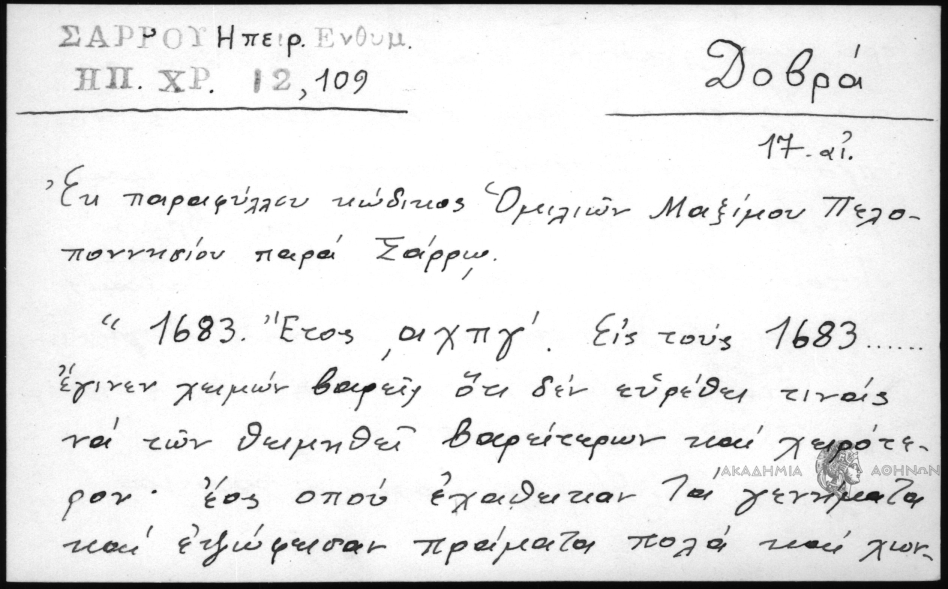 ΣΑΡΡΟΥ Ηπειρ. Ενθυμ.
ΗΠ. ΧΡ. 12, 109
Δοβρά
17 αἰ.
Ἐκ παραφύλλου κώδικος Ὁμιλιῶν Μαξίμου Πελο-
ποννησίου παρά Σάρρῳ.
“ 1683. Ἔτος ͵αχπγ΄. Εἰς τούς 1683......
ἔγινεν χειμών βαρείς ὅτι δέν εὑρέθει τινάς
νά τῶν θειμηθεῖ βαρείτερων καί χειρότε-
ρον· ἕος οπού ἐχαθεικαν τα γεννήματα
καί ἐτζιώφεισαν πράματα πολά καί χιων-
ΑΚΑΔΗΜΙΑ ΑΘΗΝΩΝ